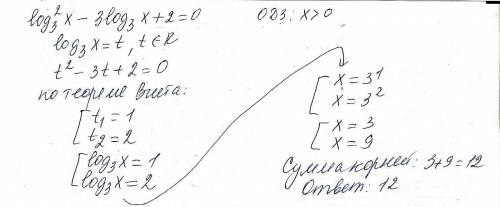 log₃²x - 3log₃x + 2 = 0
log₃x = t, t ∈ R
t² - 3t + 2 = 0
по теореме Виета:
[ t₁ = 1
[ t₂ = 2
[ log₃x = 1
[ log₃x = 2
ОДЗ: x > 0
[ x = 3¹
[ x = 3²
[ x = 3
[ x = 9
Сумма корней: 3 + 9 = 12
Ответ: 12